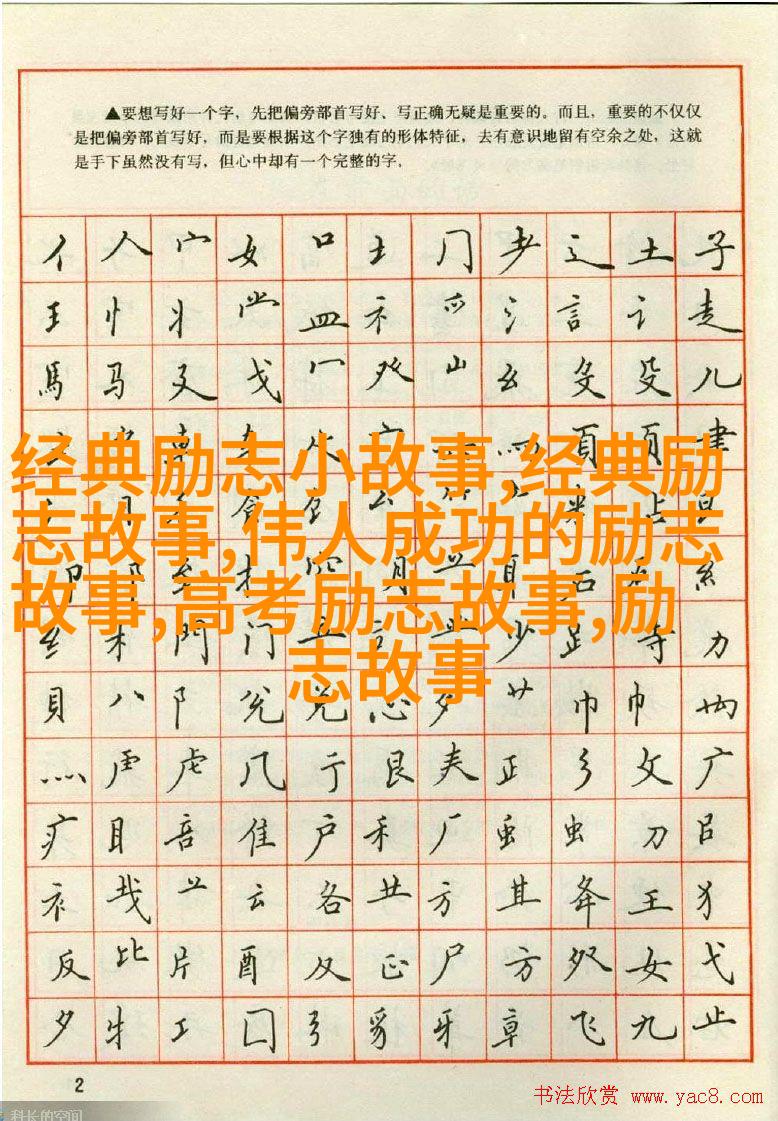 ▲要想写好一个字，先把偏旁部首写好、写正确无疑是重要的。而且，重要的不仅仅
是把偏旁部首写好，而是要根据这个字独有的形体特征，去有意识地留有空余之处，这就
是手下虽然没有写，但心中却有一个完整的字．
亻 人 宀 女 口 土 冂 耂 辶 土 子
王 忄 丬 龸 皿 礻 氵 言 讠 走
馬 马 廴 戈 冖 癶 山 幺 殳 儿
頁 页 書
经典励志小故事,经典励
志故事,伟人成功的励志
故事,高考励志故事,励
志故事
糹
纟 木 門 门 立 言 少 寺 力
貝 八 阝 兑 心 夕 艹 巾
灬 虍 虎 几 亍 艮 夫 正 彡 攵 广
疒 目 音 隹 户 利 厂 虫 刀 吕
衤 云 各 龷 方 其 夅 王 犭
反 比 片 酉 及 正 尸 方 女 弋
夕 牜 工 囗 弓 豸 牙 章 飞 九 止
2
书法欣赏 www.yac8.com
科长的空间